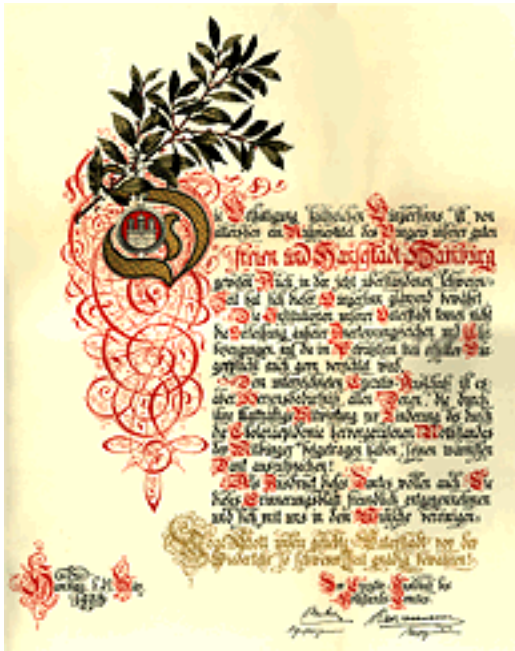 Die Bethätigung hülfreichen Bürgersinns ist von
altersher ein Ruhmestitel des Bürgers unserer guten
freien und Hansestadt Hamburg
gewesen. Auch in der jetzt überstandenen schweren
Zeit hat sich dieser Bürgersinn glänzend bewährt.
Die Institutionen unserer Vaterstadt kennen nicht
die Verleihung äußerer Anerkennungszeichen und
auf die im Bewußtsein treu erfüllter
auch gern verzichtet wird.
Dem unterzeichneten Executiv-Ausschuß ist es
aber Herzensbedürfniß, allen Denen, die durch
ihre thatkräftige Mitwirkung zur Linderung des durch
die Choleraepidemie hervorgerufenen Nothstandes
der Mitbürger beigetragen haben, seinen wärmsten
Dank auszusprechen!
Als Ausdruck dieses Dankes wollen auch Sie
dieses Erinnerungsblatt freundlich entgegennehmen
und sich mit uns in dem Wunsche vereinigen:
Gott unsere geliebte Vaterstadt vor der
Wiederkehr so schwerer Zeit gnädig bewahren!
Hamburg,
1893
Der Executiv-Ausschuß des
Comités